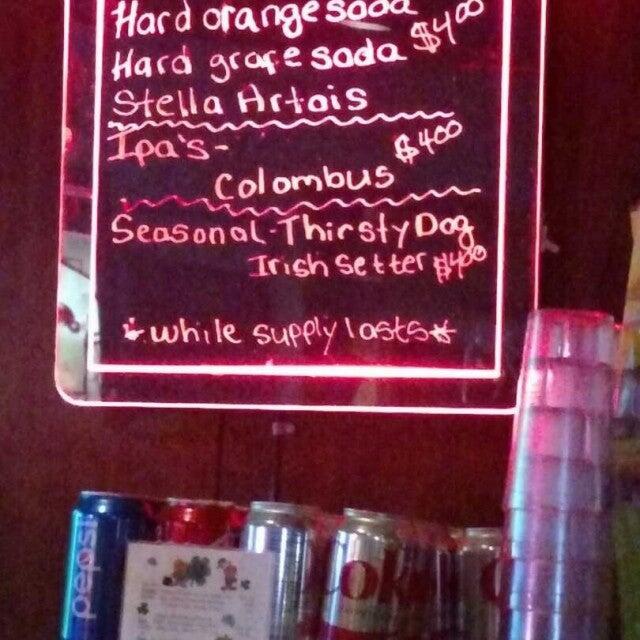 Hard orange soda
Hard grape soda $4.00
Stella Artois
Ipa's- $4.00
Colombus
Seasonal-Thirsty Dog
Irish Setter $4.00
*while supply lasts*
pepsi
Coke